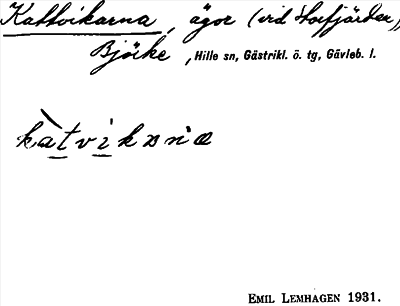 Kattvikarna, ägor (vid Storfjärden),
Björke, Hille sn, Gästrikl. ö. tg, Gävleb. l.
kàtvikaɳa
EMIL LEMHAGEN 1931.